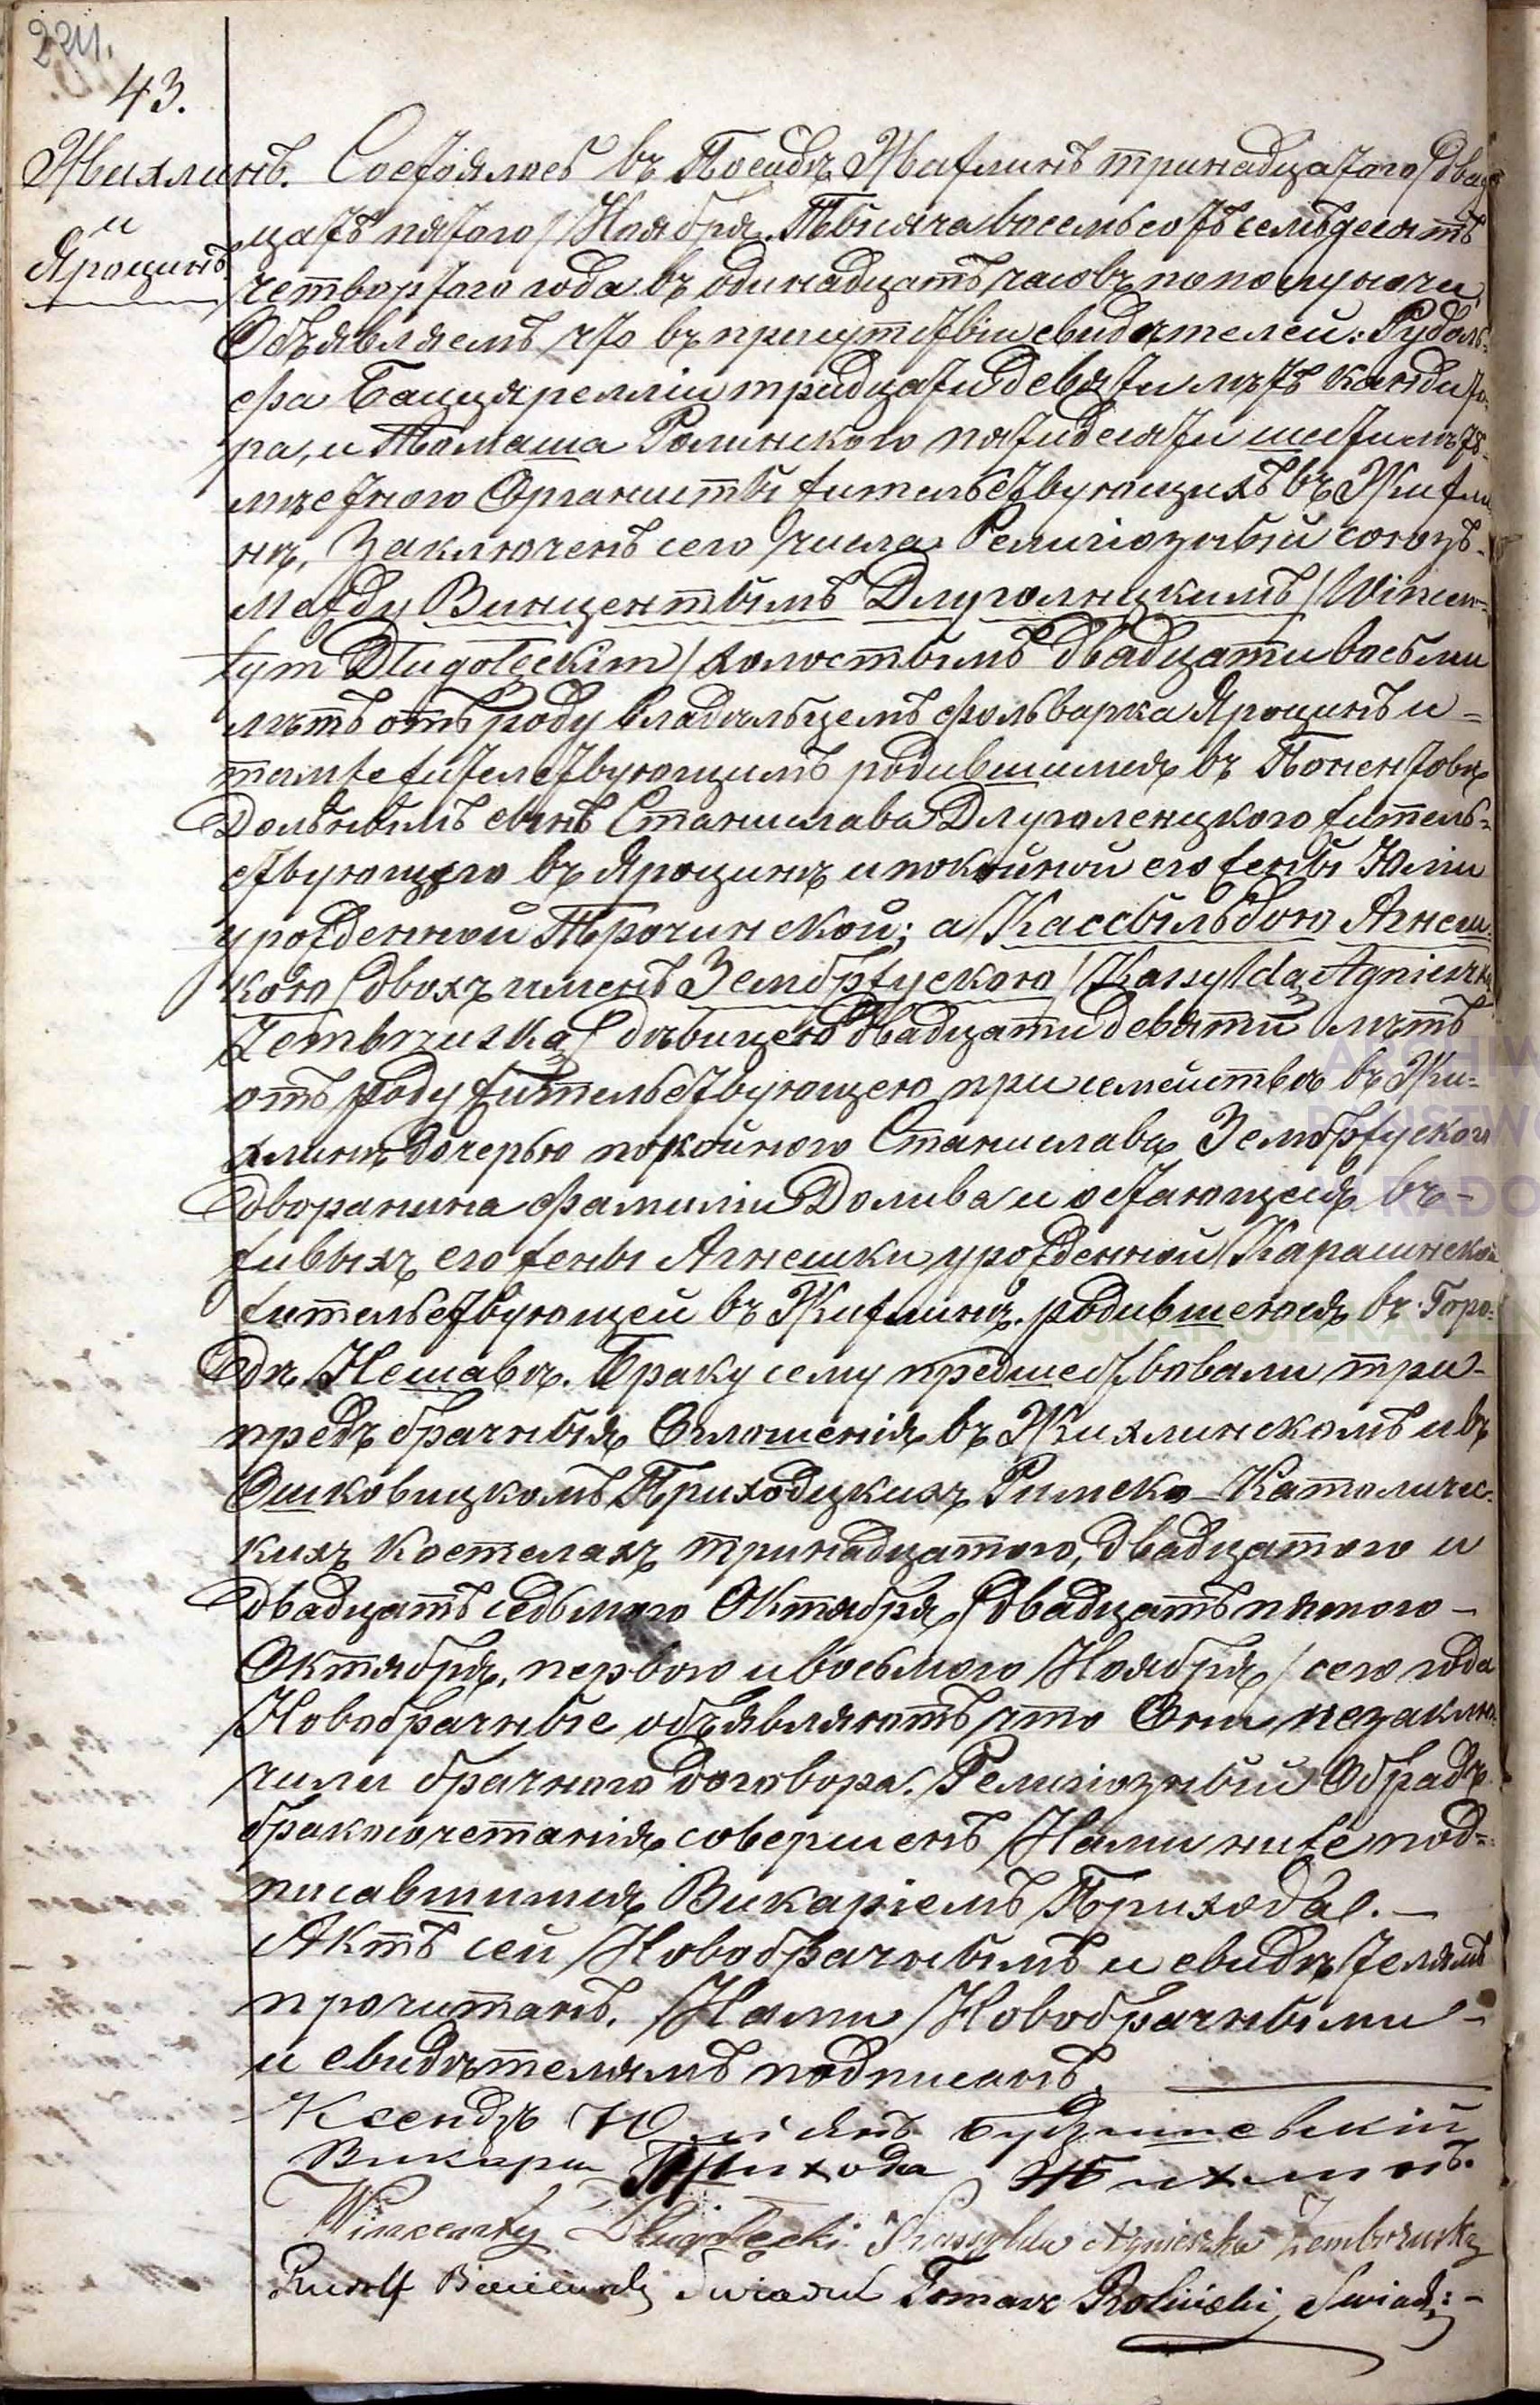 224.
43.
Жихлинъ.
и
Ярощинъ
Состоялось въ Посадѣ Жихлинъ тринадцатого /двад
цать пятого/ Ноября Тысяча восемьсотъ семьдесятъ
четвортого года въ одинадцать часовъ пополуночи
Объявляемъ что въ присутствіи свидѣтелей: Рудоль-
фа Баццяреллiи тридцати девяти лѣтъ кандито-
ра, и Томаша Ролинского пятидесяти шести лѣтъ
мѣстного Органисты жительствующихъ въ Жихли
нѣ, Заключенъ сего числа Религіозный союзъ
между Винцентымъ Длуголэнцкимъ /Wincen-
tym Długołęckim/ холостымъ двадцати восьми
лѣтъ отъ роду владѣльцемъ фольварка Ярощинъ и
тамже жительствующимъ родившимся въ Понентовѣ
Дольнымъ сынъ Станислава Длуголенцкого житель-
ствующего въ Ярощинѣ и покойной его жены Юліи
урожденной Трочинской; а Кассыльдою Агнеш-
кою /двохъ именъ Зембржускою /Kassyldą Agnieszką
Zembrzuską/ дѣвицею двадцати девяти лѣтъ
отъ роду жительствующею при семействѣ въ Жи-
хлинѣ дочерью покойного Станислава Зембржуского
дворанина фамиліи Долива и остающейся въ
живыхъ его жены Агнешки урожденной Карашинской
жительствующей въ Жихлинѣ, родившеюся въ Горо-
дѣ Нешавѣ. Браку сему предшествовали три
предъ брачныя Оглошенія въ Жихлинскомъ и въ
Ошковицкомъ Приходцкихъ Римско-Католичес-
кихъ костелахъ тринадцатого, двадцатого и
двадцать седьмого Октября /двадцать пятого
Октября, первого и восьмого Ноября/ сего года
Новобрачные объявляютъ что Они незаклю-
чили брачного договора. Религіозный Обрадъ
бракосочетанія совершенъ Нами ниже под-
писавшимся Викаріемъ Прихода.
Актъ сей Новобрачнымъ и свидѣтелямъ
прочитанъ, Нами Новобрачными
и свидѣтелямъ подписанъ.
Ксендзъ Юліянъ Будзишевскій
Викари Прихода Жихлинъ.
Wincenty Długołęcki Kassylda Agnieszka Zembrzuska
Rudolf Bacciarelli Swiadek Tomasz Roliński Swiadk: